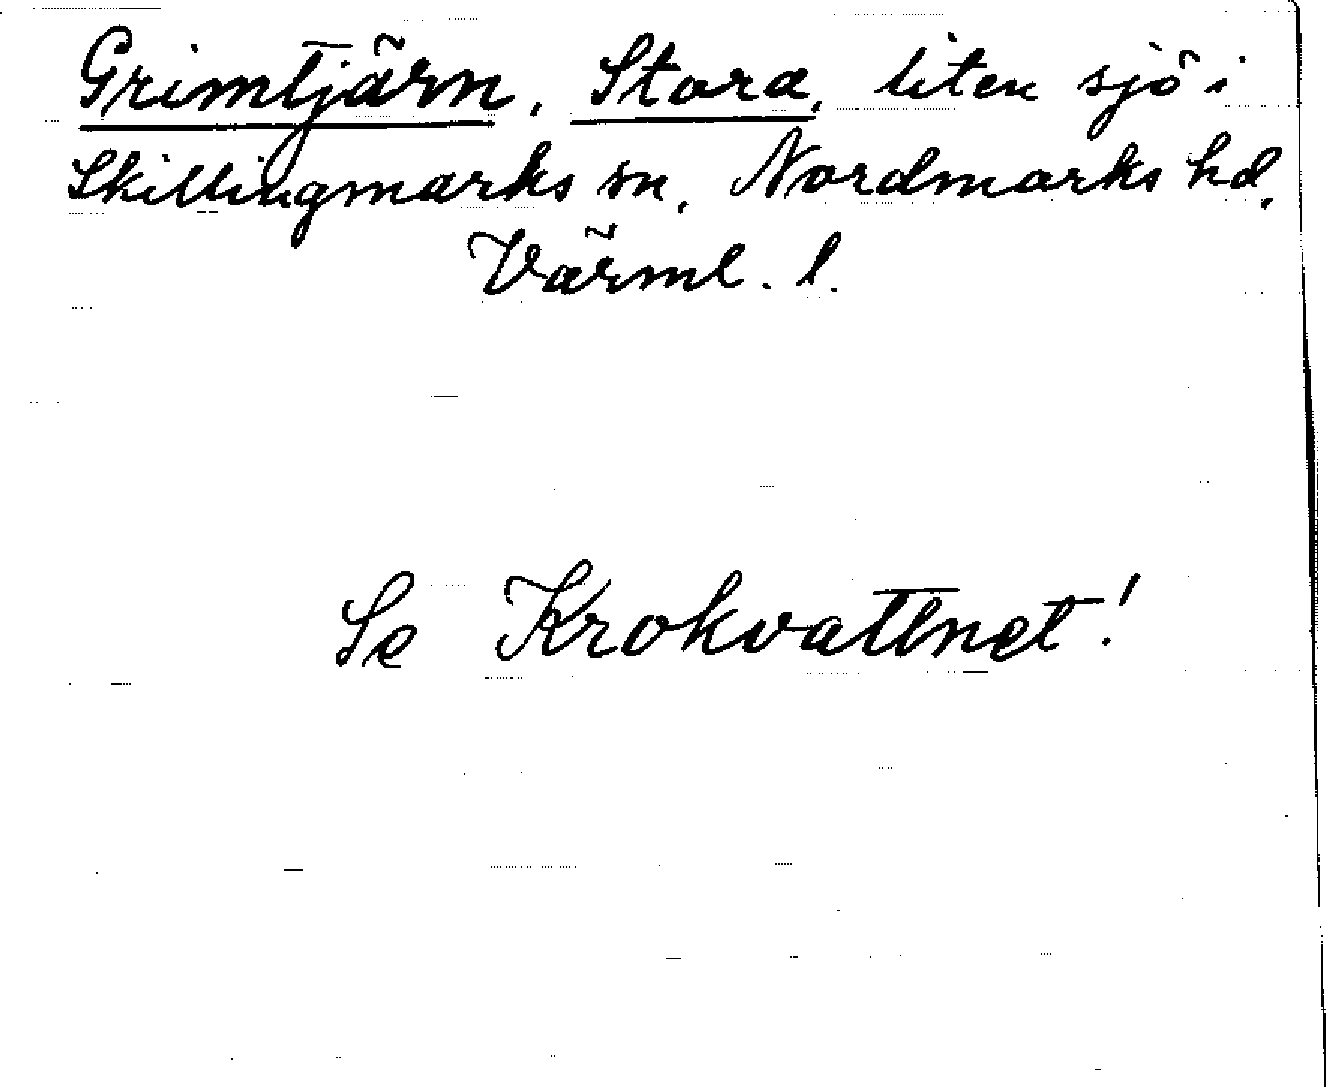 Grimtjärn, Stora, liten sjö i
Skillingmarks sn, Nordmarks hd,
Värml. l.
Se Krokvattnet!